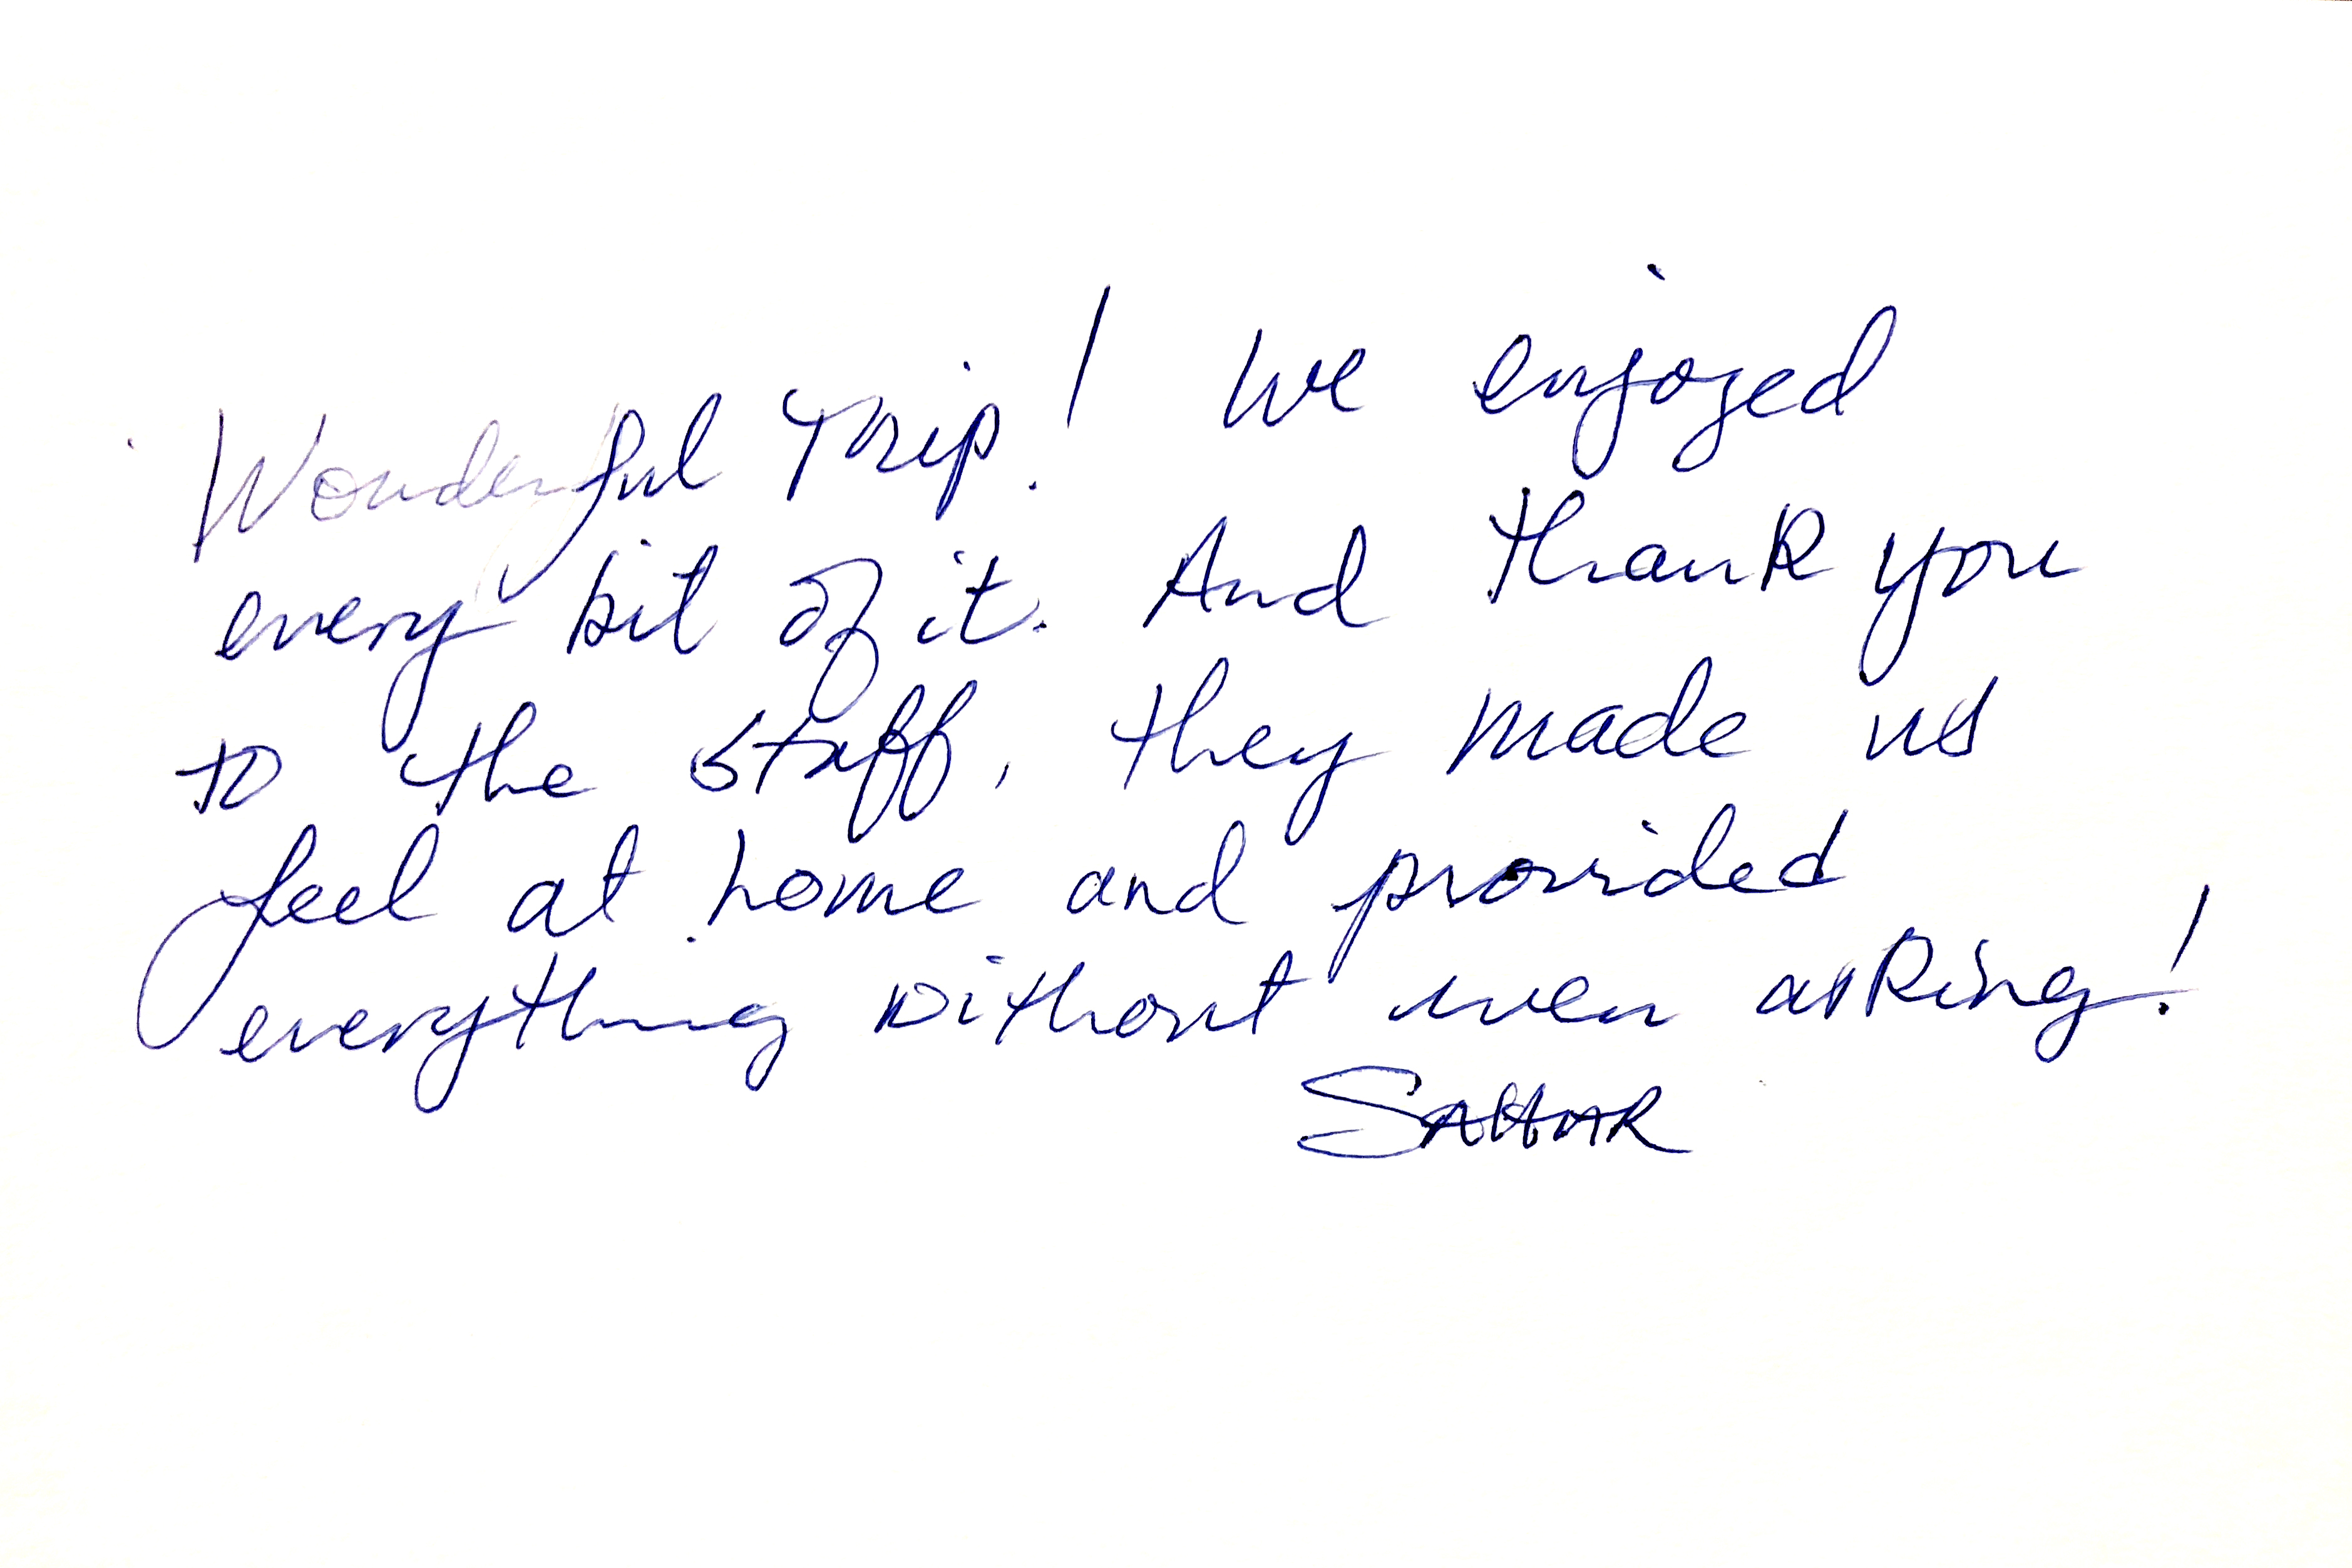 Wonderful Trip! We enjoyed
every bit of it. And thank you
to the staff, they made us
feel at home and provided
everything without even asking!